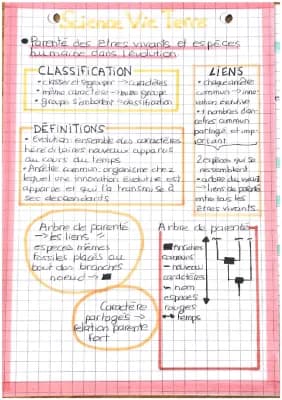 Science Vie Terre
• Parenté des êtres vivants et espèces
humaine dans l'évolution
CLASSIFICATION
• classer et regrouper → caractères
• même caractère → même groupe
• groupe s'emboîtent → classification
LIENS
• chaque ancêtre
commun → inno-
vation évolutive
• + nombres d'an-
cêtres commun
partagé et imp-
ortant
2 espèces qui se
ressemblent
→ liens de parenté
entre tous les
êtres vivants
DÉFINITIONS
• Évolution ensemble des caractères
héréditaires nouveaux apparus
au cours du temps
• Ancêtre commun: organisme chez
lequel une innovation évolutive est
apparue et qui l'a transmise à
ses descendants
Arbre de parenté
→ les liens
espèces mêmes
fossiles placés au
bout des branches
nœud →
Caractère
partagés →
relation parenté
fort
Arbre de parenté
Ancêtres
communs
— nouveau
caractères
~ nom
espèces
rouges
↔ temps